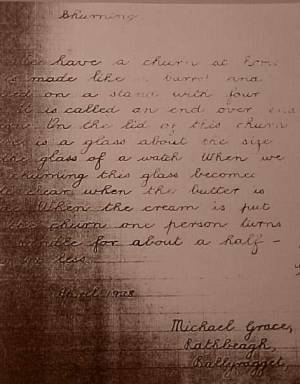 Churning
have a churn at home
is made like a barrel and
on a stand with four
it is called an end over end
On the lid of this churn
is a glass about the size
the glass of a watch When we
churning this glass becomes
clear when the butter is
When the cream is put
the churn one person turns
handle for about a half -
less.
April 1938
Michael Grace,
Rathbeagh,
Ballyragget,